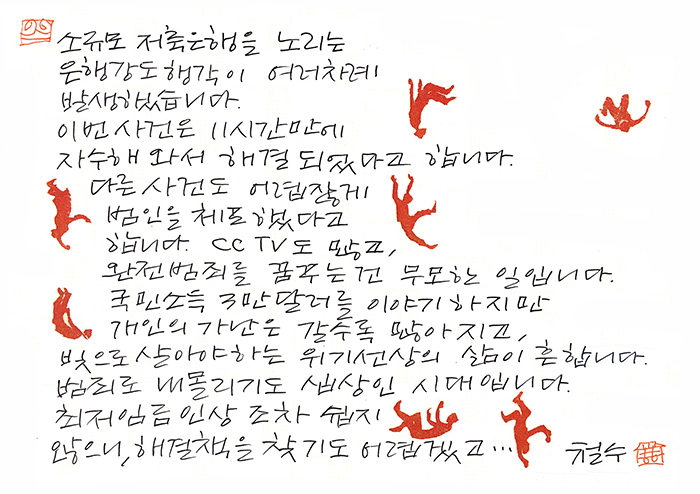 소규모 저축은행을 노리는
은행강도 행각이 여러차례
발생했습니다.
이번 사건은 11시간만에
자수해 와서 해결되었다고 합니다.
다른 사건도 어렵잖게
범인을 체포했다고
합니다. CCTV도 많고,
완전범죄를 꿈꾸는건 무모한 일입니다.
국민소득 3만달러를 이야기하지만
개인의 가난은 갈수록 많아지고,
빚으로 살아야하는 위기선상의 삶이 흔합니다.
범죄로 내몰리기도 쉽상인 시대입니다.
최저임금인상 조차 쉽지
않으니, 해결책을 찾기도 어렵겠고…
철수